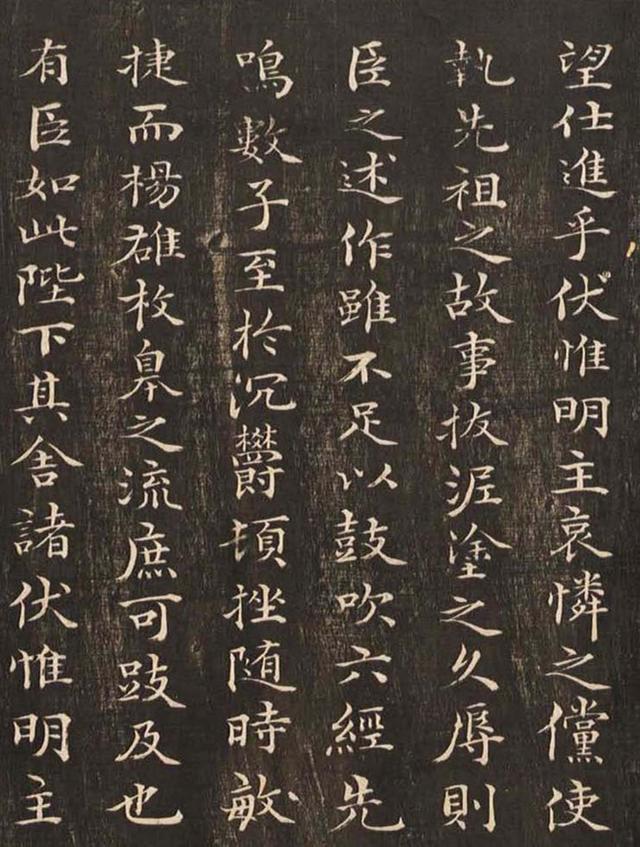 望仕進乎伏惟明主哀憐之儻使
執先祖之故事拔泥塗之久辱則
臣之述作雖不足以鼓吹六經先
鳴數子至於沉欝頓挫随時敏
捷而楊雄枚臯之流庶可跂及也
有臣如此陛下其舍諸伏惟明主